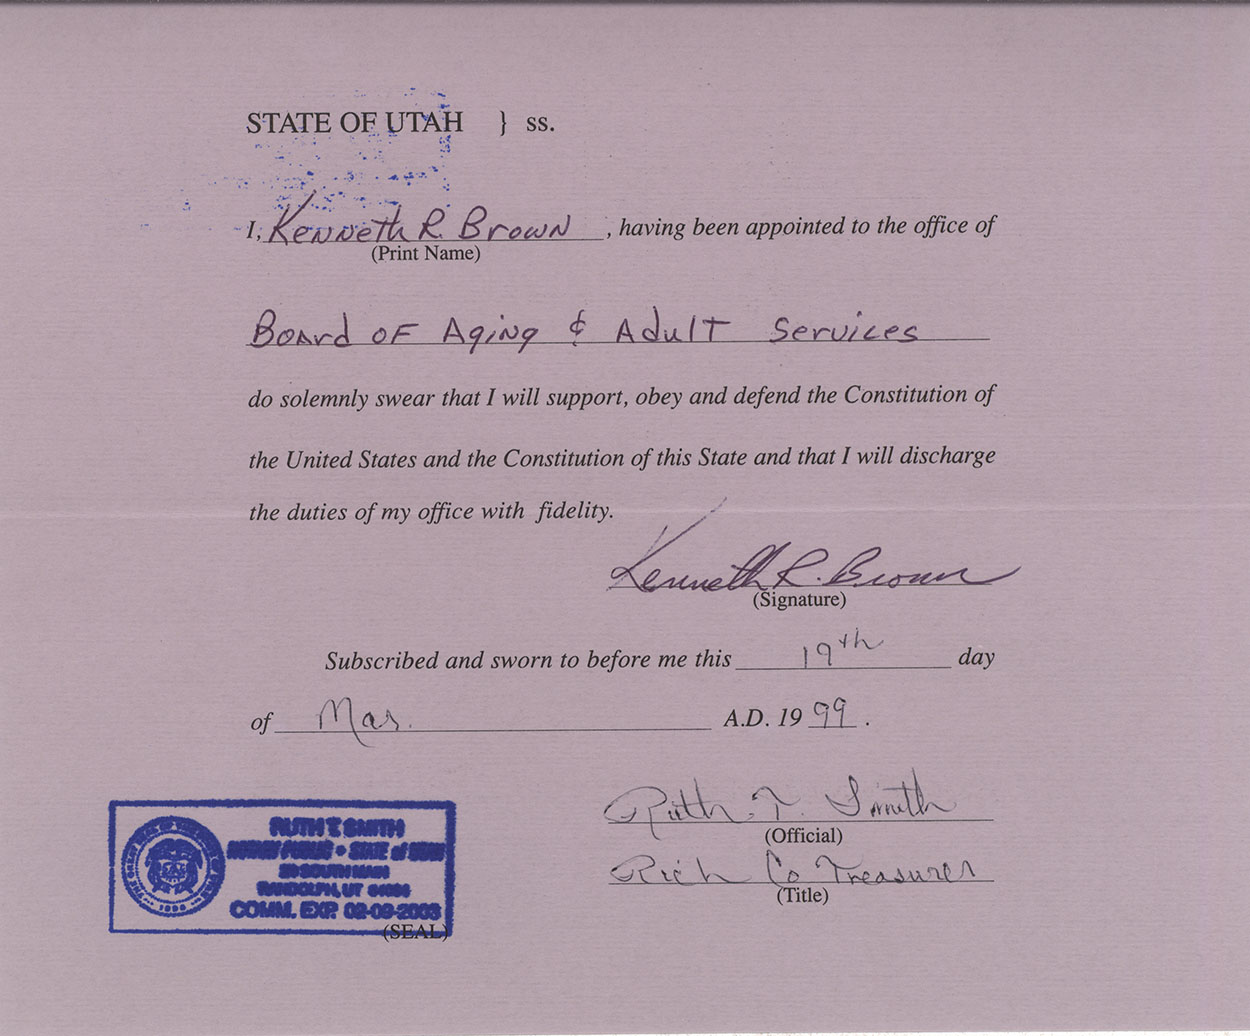 STATE OF UTAH } ss.
I, Kenneth R. Brown , having been appointed to the office of
(Print Name)
Board of Aging & Adult Services
do solemnly swear that I will support, obey and defend the Constitution of
the United States and the Constitution of this State and that I will discharge
the duties of my office with fidelity.
Kenneth R. Brown
(Signature)
Subscribed and sworn to before me this 19th day
of Mar. A.D. 19 99 .
Ruth T. Smith
(Official)
Rich Co Treasurer
(Title)
RUTH T SMITH
NOTARY PUBLIC • STATE of UTAH
20 SOUTH MAIN
RANDOLPH, UT
COMM. EXP. 02-09-2003
1896
(SEAL)